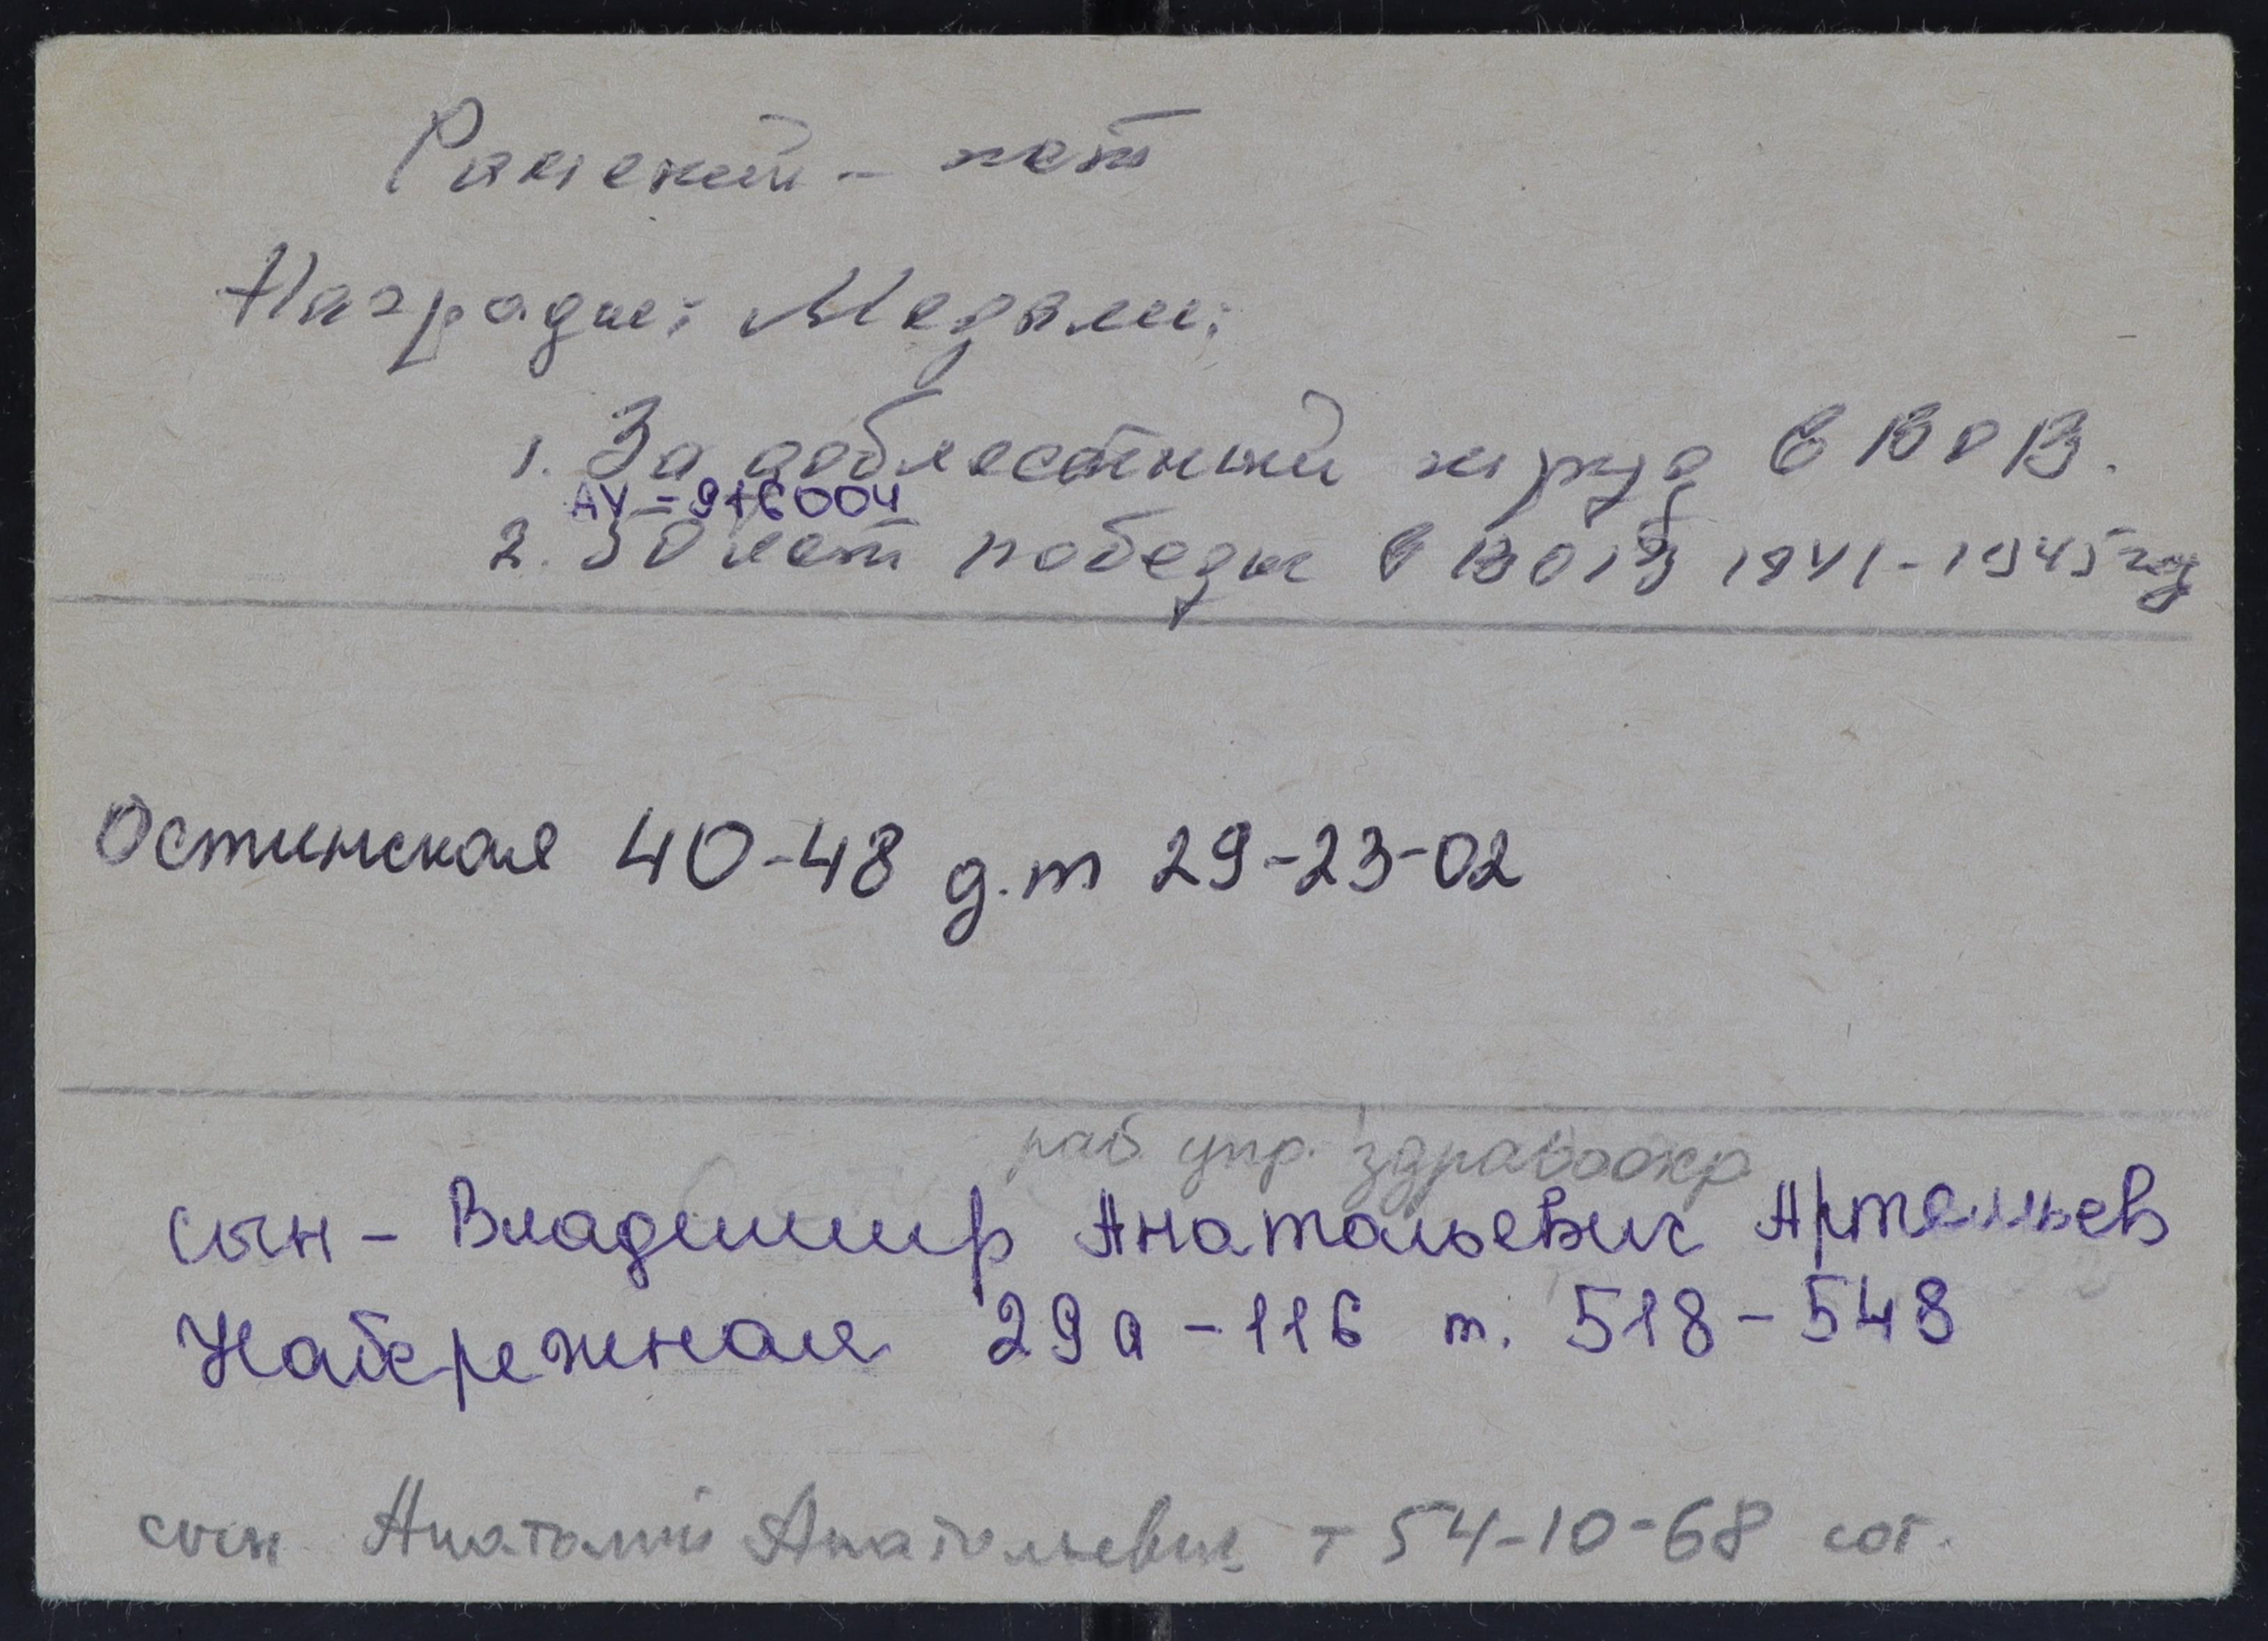 Ранений - нет
Награды: Медали:
1. За доблестный труд в ВОВ.
АУ = 916004
2. 50 лет победы в ВОВ 1941-1945 гг
Остинская 40-48 д.т 29-23-02
раб. упр. здравоохр
сын - Владимир Анатольевич Артемьев
Набережная 29а - 116 т. 518-548
сын Анатолий Анатольевич т 54-10-68 сот.